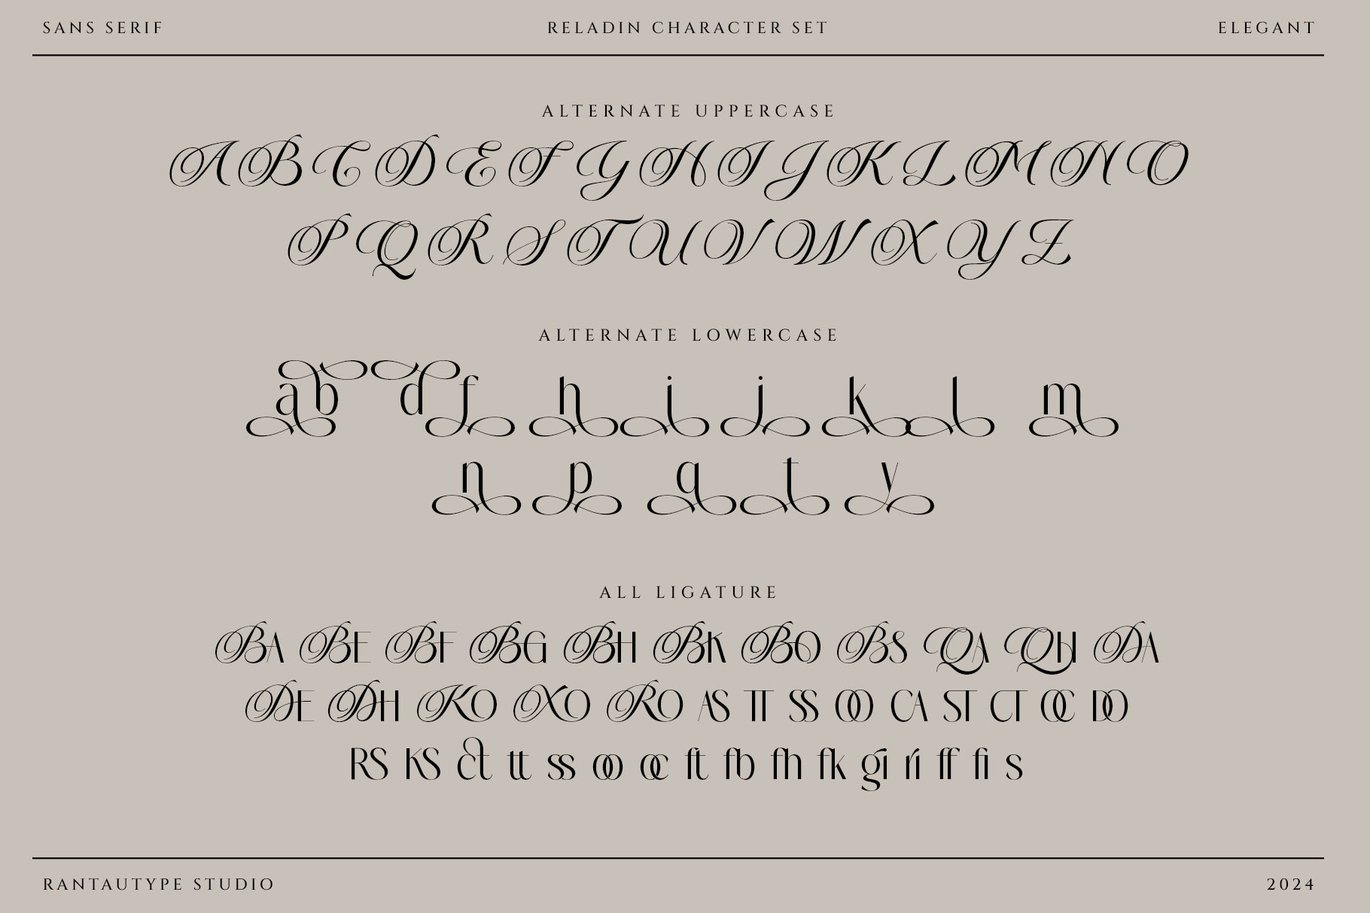 SANS SERIF RELADIN CHARACTER SET ELEGANT
ALTERNATE UPPERCASE
A B C D E F G H I J K L M N O
P Q R S T U V W X Y Z
ALTERNATE LOWERCASE
a b d f h i j k l m
n p q t y
ALL LIGATURE
BA BE BF BG BH BK BO BS QA QH DA
DE DH KO XO RO AS TT SS OO CA ST CT OC DO
RS KS ct tt ss oo oc ft fb fh fk gi ri ff fi s
RANTAUTYPE STUDIO 2024